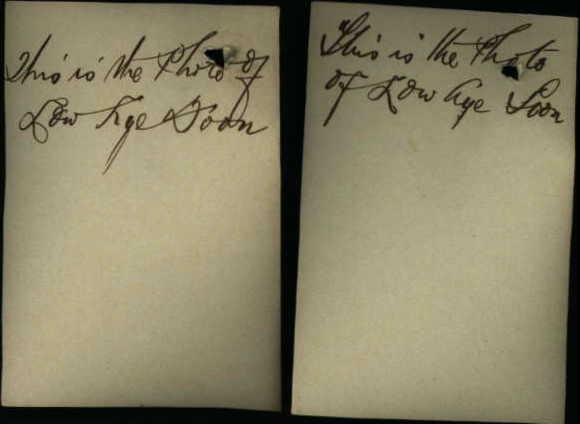 This is the Photo of
Low Kye Soon
This is the Photo
of Low Kye Soon